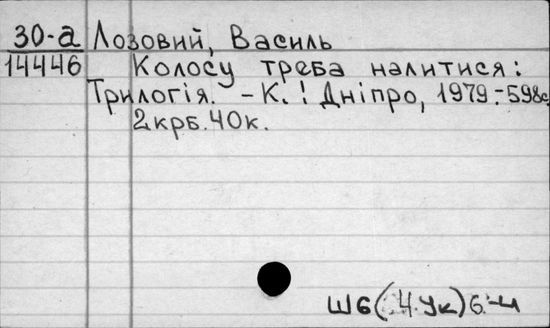 30-а Лозовий, Василь
14446 Колосу треба налитися:
Трилогія. - К.: Дніпро, 1979.-598с.
2крб.40к.
Ш6(4Ук)6-4